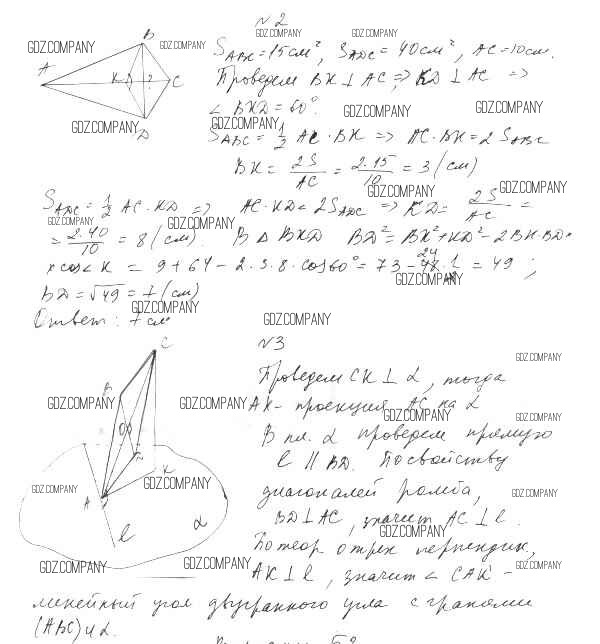 N 2
S_ABC = 15 см², S_ADC = 40 см², AC = 10 см.
Проведем BK ⊥ AC, => KD ⊥ AC =>
∠ BKD = 60°.
S_ABC = 1/2 AC · BK => AC · BK = 2 S_ABC
BK = 2S/AC = 2·15/10 = 3 (см)
S_ADC = 1/2 AC · KD => AC · KD = 2S_ADC => KD = 2S/AC =
= 2·40/10 = 8 (см). В Δ BKD BD² = BK² + KD² − 2BK·BD·
× cos∠K = 9 + 64 − 2·3·8·cos60° = 73 − 24 = 49;
BD = √49 = 7 (см)
Ответ: 7 см
N 3
Проведем CK ⊥ α, тогда
AK - проекция AC на α
В пл. α проведем прямую
l ∥ BD. По свойству
диагоналей ромба,
BD ⊥ AC, значит AC ⊥ l.
По теор о трех перпендик,
AK ⊥ l, значит ∠ CAK -
линейный угол двугранного угла с гранями
(ABC) и α.
A B C D K ?
C K A l α
GDZ.COMPANY